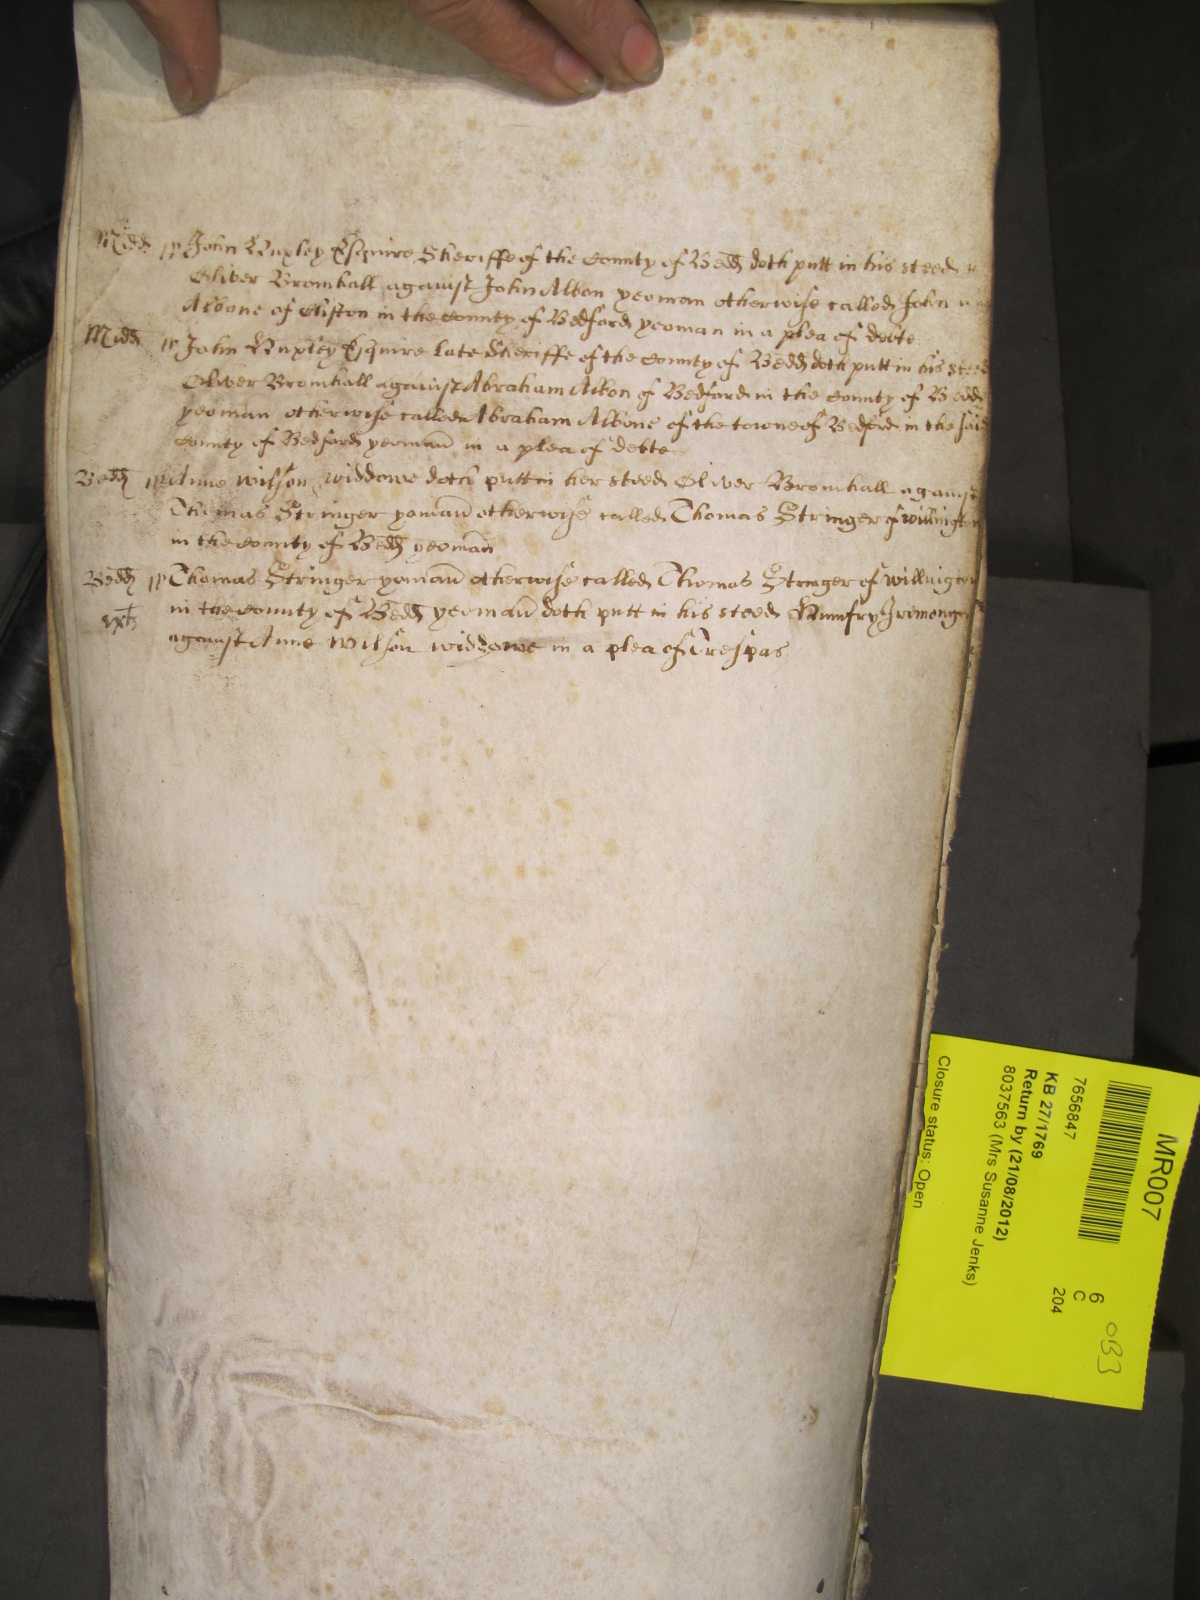 Midd John Huxley Esquire Sheriffe of the County of Bedd doth putt in his steed
Oliver Bromhall against John Albon yeoman otherwise called John
Albone of Clifton in the County of Bedford yeoman in a plea of debte
Midd John Huxley Esquire late Sheriffe of the County of Bedd doth putt in his steed
Oliver Bromhall against Abraham Albon of Bedford in the County of Bedd
yeoman otherwise called Abraham Albone of the towne of Bedford in the said
County of Bedford yeoman in a plea of debte
Bedd Anne Wilson widdowe doth putt in her steed Oliver Bromhall against
Thomas Stringer yoman otherwise called Thomas Stringer of Willington
in the County of Bedd yeoman
Bedd Thomas Stringer yoman otherwise called Thomas Stringer of Willington
in the County of Bedd yeoman doth putt in his steed Humfry Iremonger
against Anne Wilson widdowe in a plea of Trespas
MR007
7656847
KB 27/1769
Return by (21/08/2012)
8037563 (Mrs Susanne Jenks)
Closure status: Open
6
C
204
OB3